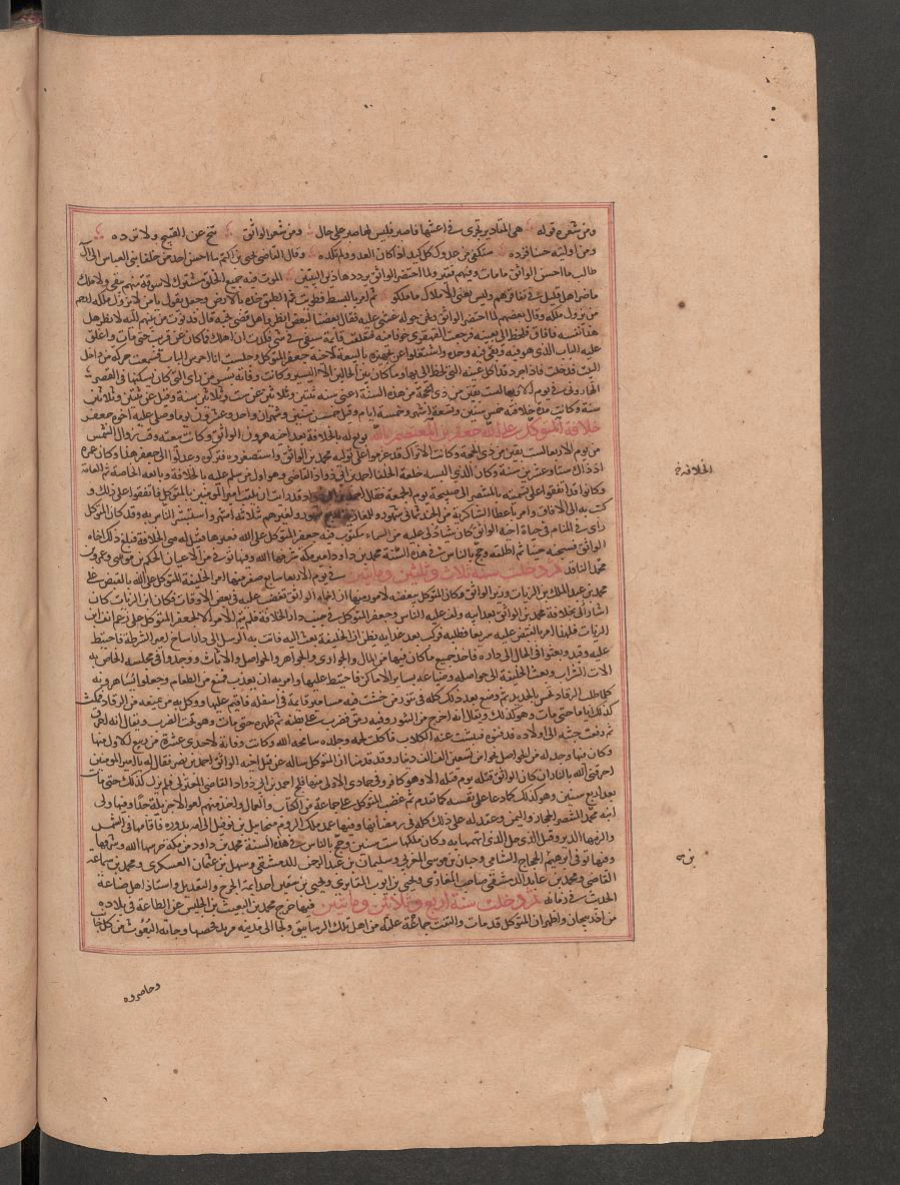 ومن شعره قوله هي المقادير تجري في اعنتها فاصبر فليس لها صبر على حال ومن شعر الواثق تنح عن القبيح ولا ترده
ومن اوليته حسنا فزده ستكفى من عدوك كل كيد اذا كاد العدو ولم تكده وقال القاضي يحيى بن اكثم ما احسن احد من خلفا بني العباس الى آل
طالب ما احسن الواثق ما مات وفيهم فقير ولما احتضر الواثق جعل يردد هذين البيتين الموت فيه جميع الخلق مشترك لا سوقة منهم يبقى ولا ملك
ما ضر اهل قليل في تفاقرهم وليس يغني الاملاك ما ملكوا ثم امر بالبسط فطويت ثم الصق خده بالارض وجعل يقول يا من لا يزول ملكه ارحم
من يزول ملكه وقال بعضهم لما احتضر الواثق ونحن حوله غشي عليه فقال بعضنا لبعض انظروا هل قضى نحبه قال فدنوت من بينهم اليه لانظر هل
هدأ نفسه فافاق فلحظ الي بعينه فرجعت القهقرى خوفا منه فتعلقت قائمة سيفي في شي فكدت ان اهلك فما كان عن قريب حتى مات واغلق
عليه الباب الذي هو فيه وبقي فيه وحده واشتغلوا عن تجهيزه بالبيعة لاخيه جعفر المتوكل وجلست انا احرس الباب فسمعت حركة من داخل
البيت فدخلت فاذا جرذ قد اكل عينه التي لحظ الي بها وما كان بين الحالين الا اليسير وكانت وفاته بسر من راى التي كان يسكنها في القصر
الهاروني في يوم الاربعا لست بقين من ذي الحجة من هذه السنة اعني سنة ثنتين وثلاثين عن ست وثلاثين سنة وقيل عن ثنتين وثلاثين
سنة وكانت مدة خلافته خمس سنين وتسعة اشهر وخمسة ايام وقيل خمس سنين وشهران واحد وعشرون يوما وصلى عليه اخوه جعفر
خلافة المتوكل على الله جعفر بن المعتصم بالله بويع له بالخلافة بعد اخيه هرون الواثق وكانت بيعته وقت زوال الشمس
من يوم الاربعا لست بقين من ذي الحجة وكانت الاتراك قد عزموا على تولية محمد بن الواثق فاستصغروه فتركوه وعدلوا الى جعفر هذا وكان عمره
اذ ذاك ستا وعشرين سنة وكان الذي البسه خلعة الخلفا احمد بن ابي دواد القاضي وهو اول من سلم عليه بالخلافة وبايعه الخاصة ثم العامة
وكانوا قد اتفقوا على تسميته بالمنتصر الى صبيحة يوم الجمعة فقال احمد بن ابي دواد قد رايت ان يلقب امير المومنين بالمتوكل فاتفقوا على ذلك و
كتب به الى الافاق وامر باعطا الشاكرية من الجند ثمانية شهور وللمغاربة اربعة شهور ولغيرهم ثلاثة اشهر واستبشر الناس به وقد كان المتوكل
راى في المنام في حياة اخيه الواثق كان شيا نزل عليه من السماء مكتوب فيه جعفر المتوكل على الله فعبرها فقيل له هي الخلافة فبلغ ذلك اخاه
الواثق فسجنه حينا ثم اطلقه وحج بالناس في هذه السنة محمد بن داود امير مكة شرفها الله وفيها توفي من الاعيان الحكم بن موسى وعمرو بن
محمد الناقد ثم دخلت سنة ثلاث وثلثين ومايتين في يوم الاربعا سابع صفر منها امر الخليفة المتوكل على الله بالقبض على
محمد بن عبد الملك بن الزيات وزير الواثق وكان المتوكل يبغضه لامور منها ان اخاه الواثق تغضب عليه في بعض الاوقات فكان ابن الزيات
اشار الى بخلافة محمد بن الواثق بعد ابيه ولف عليه الناس وجعفر المتوكل في جنب دار الخلافة فلم يتم الامر الا لجعفر المتوكل على رغم انف ابن
الزيات فلهذا امر بالقبض عليه سريعا فطلبه فركب بعد غدايه يظن ان الخليفة بعث اليه فاتت به الرسل الى دار ايتاخ امير الشرطة فاحتيط
عليه وقيد وبعثوا في الحال الى داره فاخذ جميع ما كان فيها من المال والجواري والجواهر والحواصل والاثاث ووجدوا في مجلسه الخاص به
الات الشراب وبعث الخليفة الى حواصله وضياعه بساير الاماكن فاحتيط عليها وامر به ان يعذب فمنع من الطعام وجعلوا يساهرونه
كلما طلب الرقاد نخس بالحديد ثم وضع بعد ذلك كله في تنور من خشب فيه مسامير قايمة في اسفله فاقيم عليها ووكل به من يمنعه من الرقاد فمكث
كذلك اياما حتى مات وهو كذلك ويقال انه اخرج من التنور وفيه رمق فضرب على بطنه ثم ظهره حتى مات وهو تحت الضرب ويقال انه احرق
ثم دفعت جثته الى اولاده فدفنوه فنبشت عنه الكلاب فاكلت لحمه وجلده سامحه الله وكانت وفاته لاحدى عشرة من ربيع الاول منها
وكان فيما وجد له من الحواصل نحوا من تسعين الف الف دينار وقد قدمنا ان المتوكل ساله عن قتل اخيه الواثق احمد بن نصر فقال له يا امير المومنين
احرقني الله بالنار ان كان الواثق قتله يوم قتله الا وهو كافر وفي جمادى الاولى منها فلج احمد بن ابي دواد القاضي المعتزلي فلم يزل كذلك حتى مات
بعد اربع سنين وهو كذلك كما دعا على نفسه كما تقدم ثم غضب المتوكل على جماعة من الكتاب والعمال واخذ منهم اموالا جزيلة جدا وفيها ولى
ابنه محمد المنتصر الحجاز واليمن وعقد له على ذلك كله في رمضان وفيها عمد ملك الروم ميخاييل بن توفيل الى امه بدورة فاقامها في الشمس
والزمها الدير وقتل الذي اتهمها به وكان ملكها ست سنين وحج بالناس في هذه السنة محمد بن داود من مكة حرسها الله وشرفها
وفيها توفي ابرهيم بن الحجاج الشامي وحبان بن موسى المغربي وسليمان بن عبد الرحمن الدمشقي وسهل بن عثمان العسكري ومحمد بن سماعة
القاضي ومحمد بن عايذ الدمشقي صاحب المغازي ويحيى بن ايوب المقابري ويحيى بن معين احد ائمة الجرح والتعديل واستاذ اهل صناعة
الحديث في زمانه ثم دخلت سنة اربع وثلاثين ومائتين فيها خرج محمد بن البعيث بن الحليس عن الطاعة في بلاده
من اذربيجان واظهر ان المتوكل قد مات والتفت جماعة عليه من اهل تلك الرساتيق ولجا الى مدينة مرند فحصنها وجاته البعوث من كل جانب
الخلافة
بن
وحاصروه